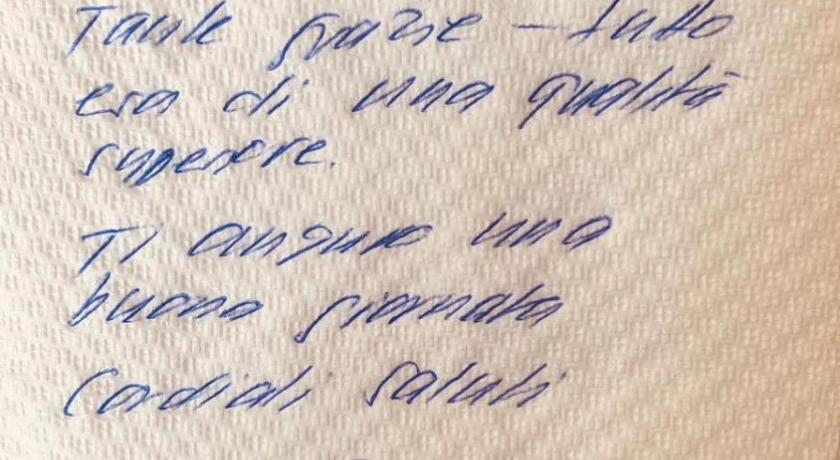 Tante grazie – tutto
era di una qualità
superiore.
Ti auguro una
buona giornata
Cordiali saluti